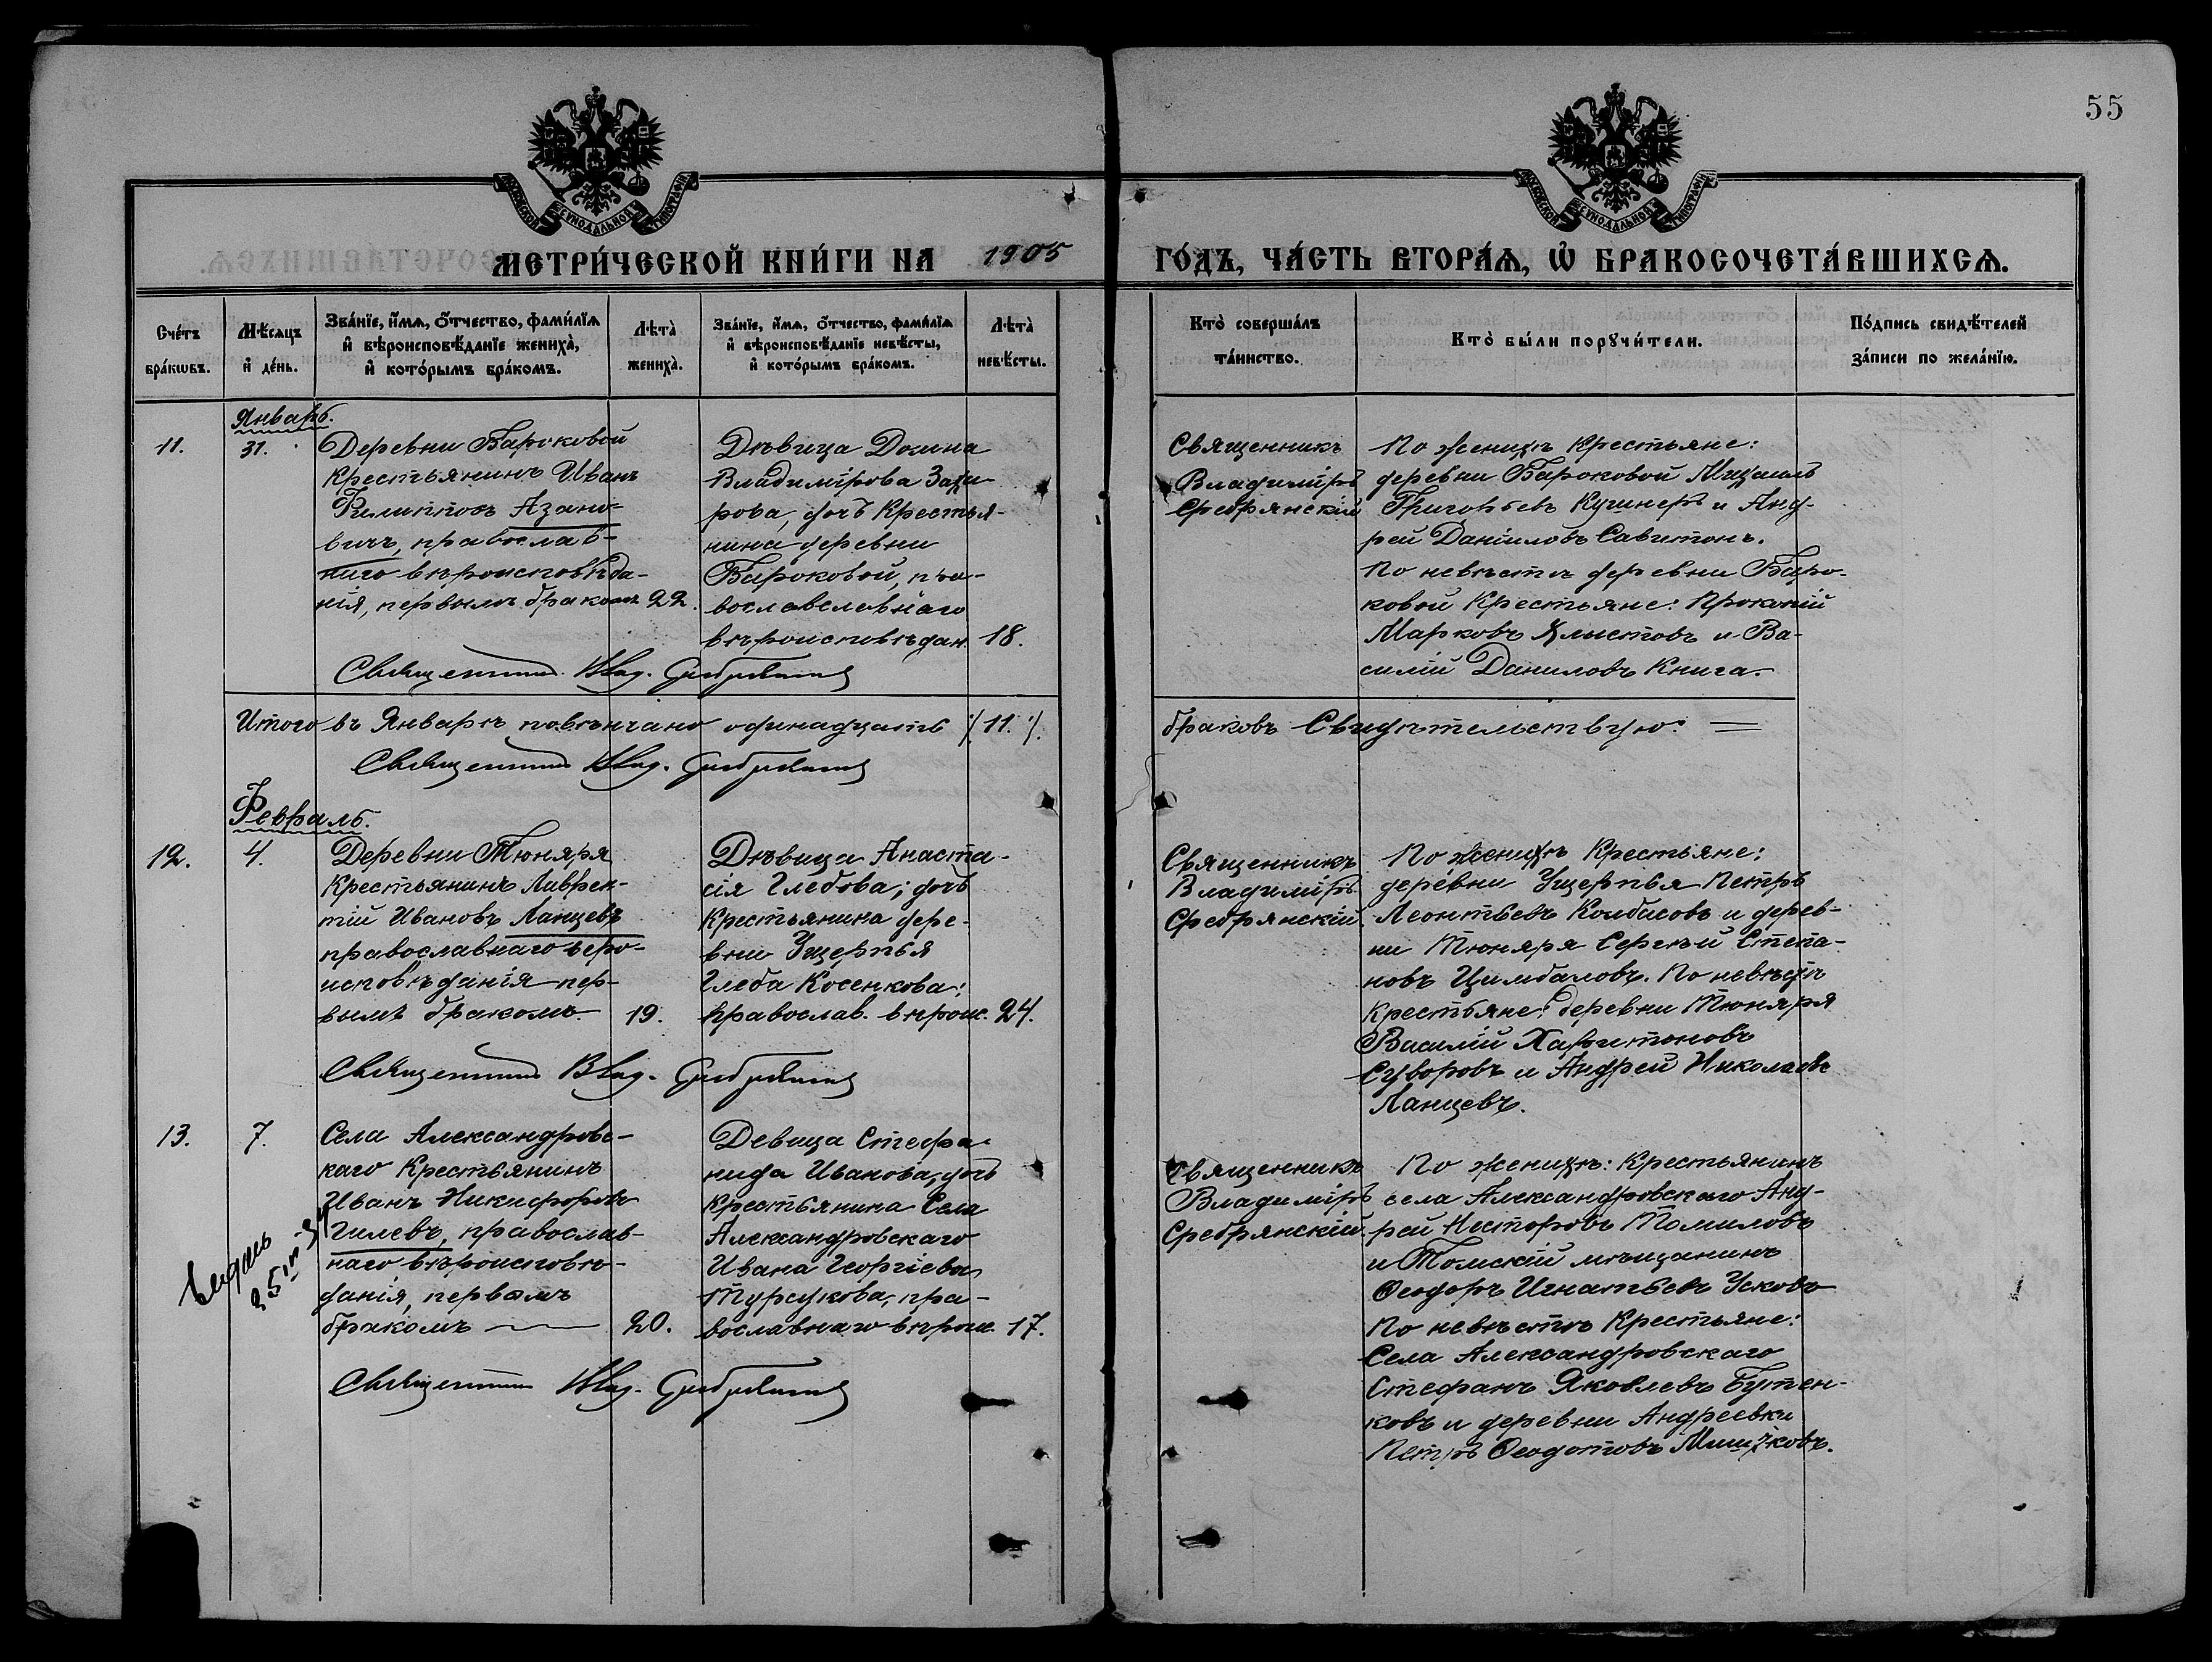 55
МЕТРИ́ЧЕСКОЙ КНИ́ГИ НА 1905 ГО́ДЪ, ЧА́СТЬ ВТОРА́Я, Ѡ҆ БРАКОСОЧЕТА́ВШИХСЯ.
Сче́тъ бра́кѡвъ.
Мѣ́сяцъ и҆ де́нь.
Зва́нїе, и҆́мя, ѻ҆́тчество, фами́лїя
и҆ вѣроисповѣ́данїе жениха̀,
и҆ кото́рымъ бра́комъ.
Лѣта̀ жениха̀.
Зва́нїе, и҆́мя, ѻ҆́тчество, фами́лїя
и҆ вѣроисповѣ́данїе невѣ́сты,
и҆ кото́рымъ бра́комъ.
Лѣта̀ невѣ́сты.
Кто̀ соверша́лъ та́инство.
Кто̀ бы́ли порꙋчи́тели.
По́дпись свидѣ́телей за́писи по жела́нїю.
Январь.
11.
31.
Деревни Бароковой
Крестьянинъ Иванъ
Филипповъ Азано-
вичъ, православ-
наго вѣроисповѣда-
нія, первымъ бракомъ
22.
Дѣвица Домна
Владимірова Заха-
рова, дочь Крестья-
нина деревни
Бароковой, пра-
вославславнаго
вѣроисповѣдан.
18.
Священникъ
Владиміръ
Сребрянскій
По женихѣ Крестьяне:
деревни Бароковой Михаилъ
Григорьевъ Кушнеръ и Анд-
рей Даніиловъ Савитонъ.
По невѣстѣ деревни Баро-
ковой Крестьяне: Прокопій
Марковъ Хлыстовъ и Ва-
силій Даниловъ Книга.
Священникъ Влад. Сребрянскій
Итого въ Январѣ повѣнчано одинадцать /11./ браковъ Свидѣтельствую:
Священникъ Влад. Сребрянскій
Февраль.
12.
4.
Деревни Тюняря
Крестьянинъ Лаврен-
тій Ивановъ Ланцевъ
православнаго веро-
исповѣданія пер-
вымъ бракомъ.
19.
Дѣвица Анаста-
сія Глебова; дочь
Крестьянина дере-
вни Ущерпья
Глеба Косенкова;
православ. вѣроис.
24.
Священникъ
Владиміръ
Сребрянскій.
По женихѣ Крестьяне:
деревни Ущерпья Петръ
Леонтьевъ Колбасовъ и дерев-
ни Тюняря Сергѣй Степа-
новъ Цимбаловъ. По невѣстѣ
Крестьяне: деревни Тюняря
Василій Харитоновъ
Суворовъ и Андрей Николаевъ
Ланцевъ.
Священникъ Влад. Сребрянскій
13.
7.
Села Александровс-
каго Крестьянинъ
Иванъ Никифоровъ
Гилевъ, православ-
наго вѣроисповѣ-
данія, первымъ
бракомъ
20.
Девица Стефа-
нида Иванова, дочь
крестьянина Села
Александровскаго
Ивана Георгіева
Турсукова, пра-
вославнаго вѣроис.
17.
Священникъ
Владиміръ
Сребрянскій.
По женихѣ: Крестьянинъ
села Александровскаго Анд-
рей Несторовъ Томиловъ
и Томскій мѣщанинъ
Ѳеодоръ Игнатьевъ Усковъ
По невѣстѣ Крестьяне:
Села Александровскаго
Стефанъ Яковлевъ Бутен-
ковъ и деревни Андреевки
Петръ Ѳеодотовъ Мишуковъ.
Священникъ Влад. Сребрянскій